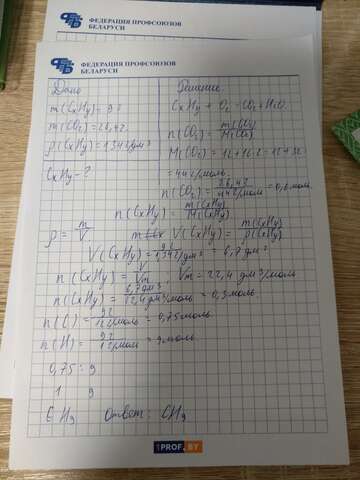 ФЕДЕРАЦИЯ ПРОФСОЮЗОВ
БЕЛАРУСИ
ФЕДЕРАЦИЯ ПРОФСОЮЗОВ
БЕЛАРУСИ
Дано Решение
m(CxHy)=9г CxHy + O2 → CO2 + H2O
m(CO2)=26,4г n(CO2) = m(CO2)/M(CO2)
ρ(CxHy)=1,34г/дм³ M(CO2) = 12+16·2 = 12+32
CxHy-? = 44г/моль
n(CO2) = 26,4г/44г/моль = 0,6моль
n(CxHy) = m(CxHy)/M(CxHy)
ρ = m/V V(CxHy) = m(CxHy)/ρ(CxHy)
V(CxHy) = 9г/1,34г/дм³ = 6,7дм³
n(CxHy) = V/Vm, Vm = 22,4 дм³/моль
n(CxHy) = 6,7дм³/22,4дм³/моль = 0,3моль
n(C) = 9г/12г/моль = 0,75моль
n(H) = 9г/1г/моль = 9моль
0,75 : 9
1 9
H9 Ответ: CH9
1PROF.BY